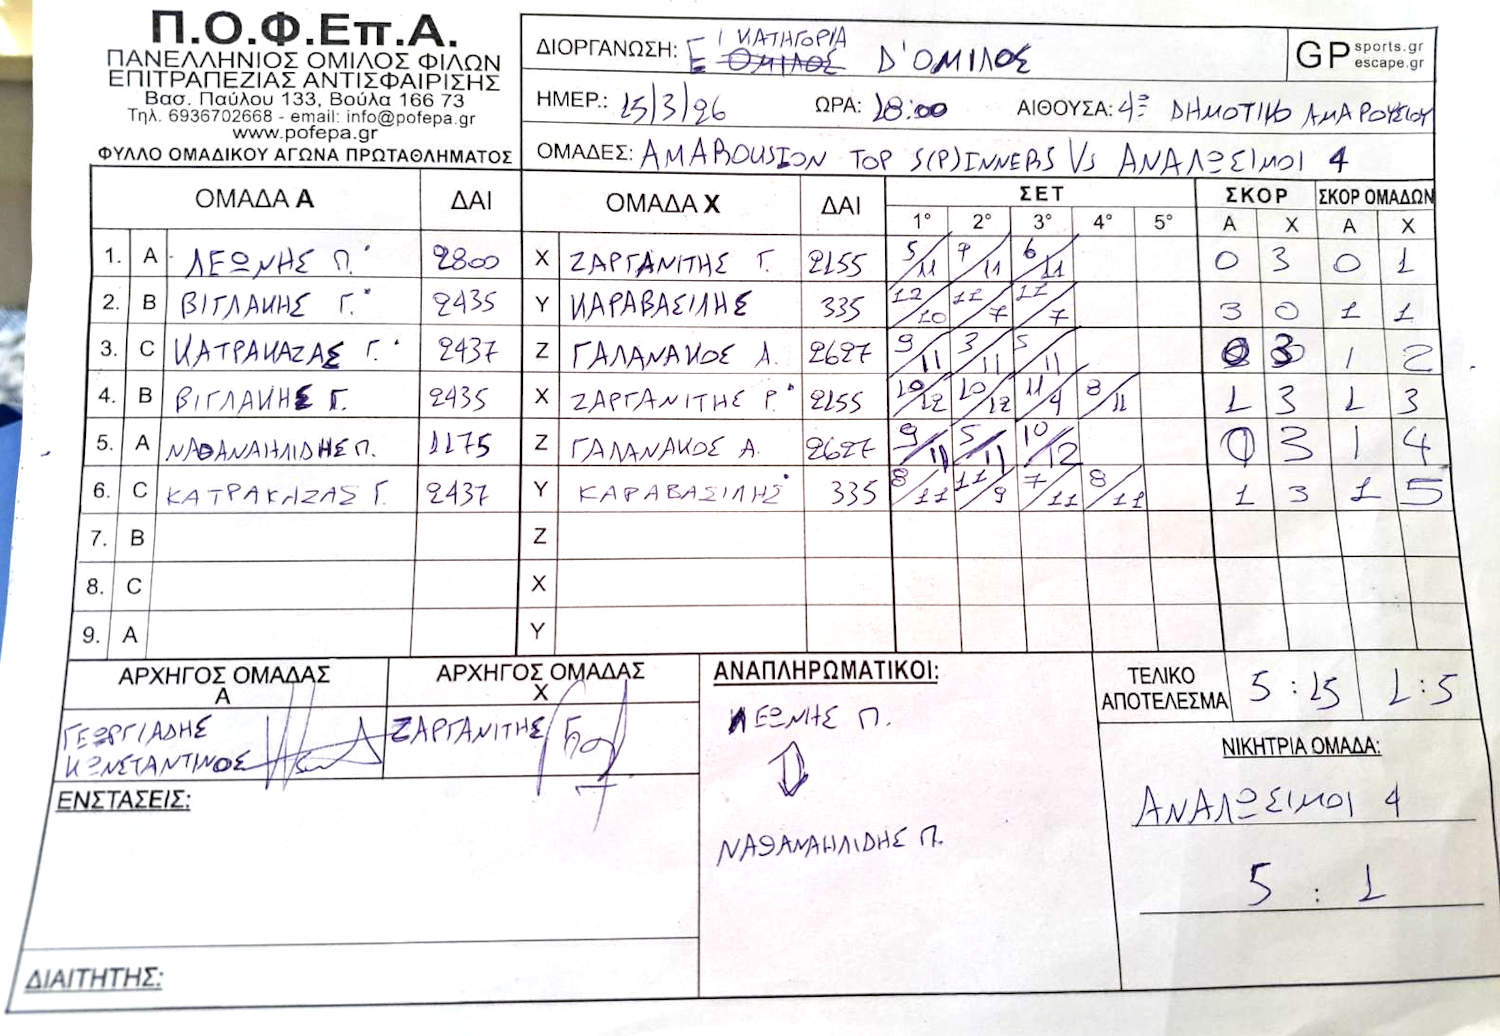 Π.Ο.Φ.Επ.Α.
ΠΑΝΕΛΛΗΝΙΟΣ ΟΜΙΛΟΣ ΦΙΛΩΝ
ΕΠΙΤΡΑΠΕΖΙΑΣ ΑΝΤΙΣΦΑΙΡΙΣΗΣ
Βασ. Παύλου 133, Βούλα 166 73
Τηλ. 6936702668 - email: info@pofepa.gr
www.pofepa.gr
ΦΥΛΛΟ ΟΜΑΔΙΚΟΥ ΑΓΩΝΑ ΠΡΩΤΑΘΛΗΜΑΤΟΣ
ΔΙΟΡΓΑΝΩΣΗ: Ε' ΚΑΤΗΓΟΡΙΑ ΟΜΙΛΟΣ Δ' ΟΜΙΛΟΣ
GP sports.gr escape.gr
ΗΜΕΡ.: 15/3/26 ΩΡΑ: 18:00 ΑΙΘΟΥΣΑ: 4ο ΔΗΜΟΤΙΚΟ ΑΜΑΡΟΥΣΙΟΥ
ΟΜΑΔΕΣ: AMAROUSION TOP S(P)INNERS Vs ΑΝΑΛΩΣΙΜΟΙ 4
ΟΜΑΔΑ Α ΔΑΙ ΟΜΑΔΑ Χ ΔΑΙ ΣΕΤ ΣΚΟΡ ΣΚΟΡ ΟΜΑΔΩΝ
1° 2° 3° 4° 5° Α Χ Α Χ
1. A ΛΕΩΝΗΣ Π. 2800 X ΖΑΡΓΑΝΙΤΗΣ Γ. 2155 5/11 7/11 6/11 0 3 0 1
2. B ΒΙΓΛΑΚΗΣ Γ. 2435 Y ΚΑΡΑΒΑΣΙΛΗΣ 335 12/10 11/7 11/7 3 0 1 1
3. C ΚΑΤΡΑΚΑΖΑΣ Γ. 2437 Z ΓΑΛΑΝΑΚΟΣ Α. 2627 9/11 3/11 5/11 0 3 1 2
4. B ΒΙΓΛΑΚΗΣ Γ. 2435 X ΖΑΡΓΑΝΙΤΗΣ Γ. 2155 10/12 10/12 11/4 8/11 1 3 1 3
5. A ΝΑΘΑΝΑΗΛΙΔΗΣ Π. 1175 Z ΓΑΛΑΝΑΚΟΣ Α. 2627 9/11 5/11 10/12 0 3 1 4
6. C ΚΑΤΡΑΚΑΖΑΣ Γ. 2437 Y ΚΑΡΑΒΑΣΙΛΗΣ 335 8/11 11/9 7/11 8/11 1 3 1 5
7. B Z
8. C X
9. A Y
ΑΡΧΗΓΟΣ ΟΜΑΔΑΣ Α
ΓΕΩΡΓΙΑΔΗΣ
ΚΩΝΣΤΑΝΤΙΝΟΣ
ΑΡΧΗΓΟΣ ΟΜΑΔΑΣ Χ
ΖΑΡΓΑΝΙΤΗΣ
ΕΝΣΤΑΣΕΙΣ:
ΔΙΑΙΤΗΤΗΣ:
ΑΝΑΠΛΗΡΩΜΑΤΙΚΟΙ:
ΛΕΩΝΗΣ Π.
ΝΑΘΑΝΑΗΛΙΔΗΣ Π.
ΤΕΛΙΚΟ ΑΠΟΤΕΛΕΣΜΑ 5 : 15 1 : 5
ΝΙΚΗΤΡΙΑ ΟΜΑΔΑ:
ΑΝΑΛΩΣΙΜΟΙ 4
5 : 1